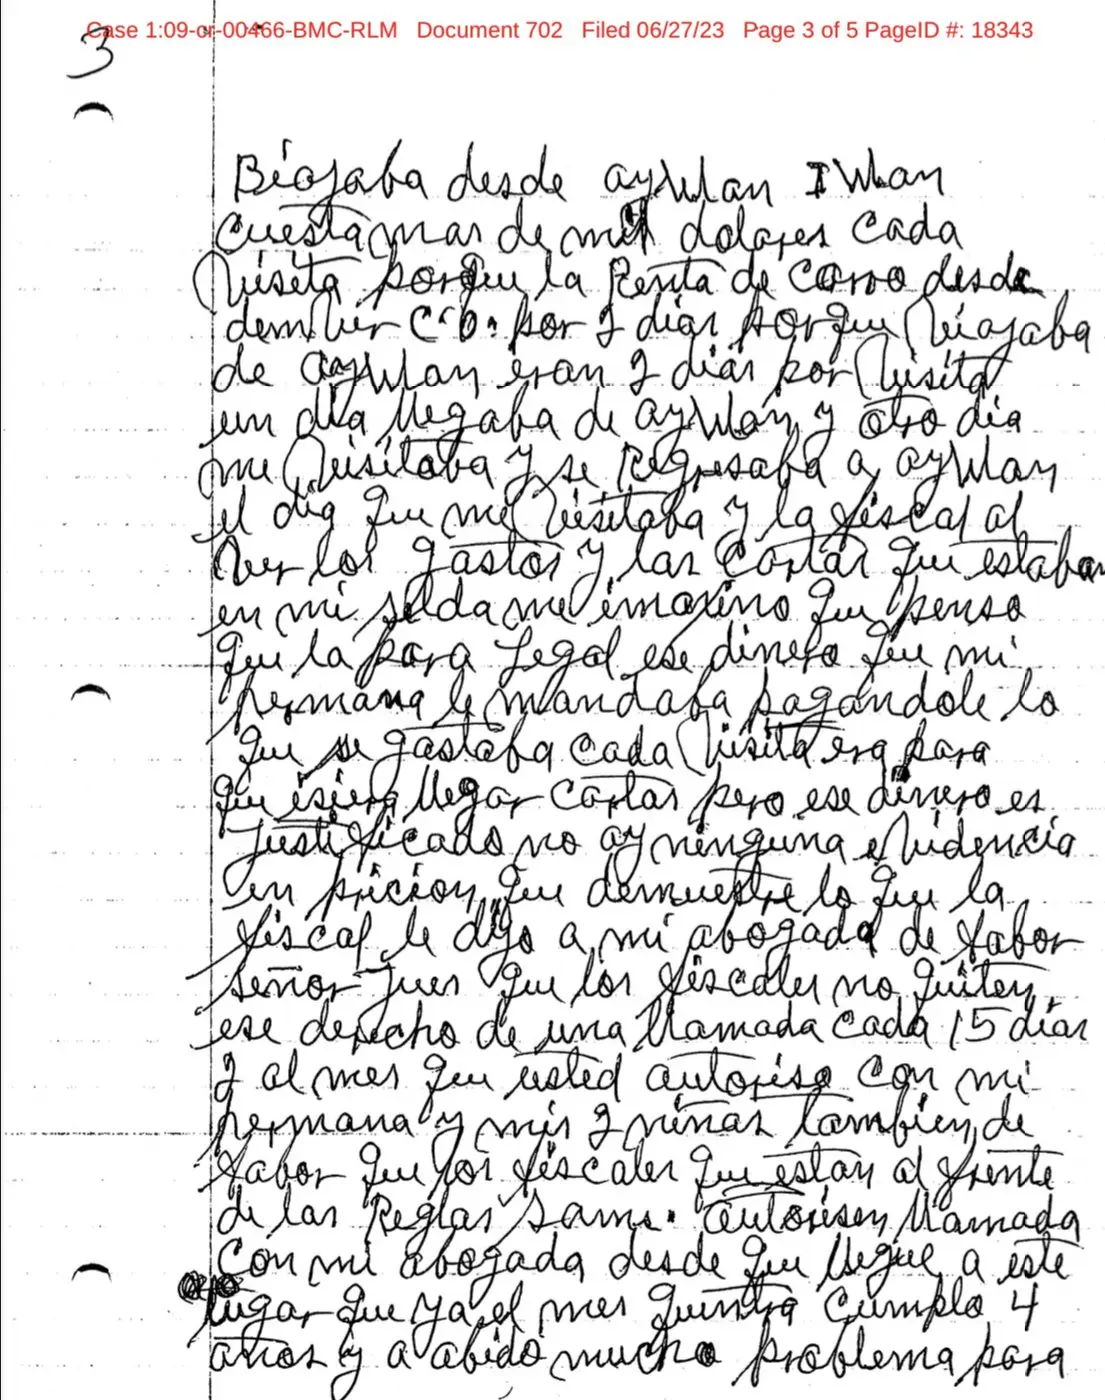 Case 1:09-cr-00466-BMC-RLM Document 702 Filed 06/27/23 Page 3 of 5 PageID #: 18343
3
Biajaba desde ayWlan
cuesta mas de mil dolares cada
Visita porque la Renta de carro desde
dember C.O. por 2 dias porque Viajaba
de ayWlan eran 2 dias por Visita
un dia llegaba de ayWlan y otro dia
me Visitaba y se Regresaba a ayWlan
el dia que me Visitaba y la fiscal al
Ver los gastos y las cartas que estaban
en mi selda me imaxino que penso
que la para legal ese dinero que mi
hermana le mandaba pagandole lo
que se gastaba cada Visita era para
que isiera llegar cartas pero ese dinero es
justificado no ay ninguna eVidencia
en pricion que demuestre lo que la
fiscal le dijo a mi abogada de fabor
señor Jues que los fiscales no quiten
ese derecho de una llamada cada 15 dias
2 al mes que usted autoriso con mi
hermana y mis 2 niñas tambien de
fabor que los fiscales que estan al frente
de las Reglas sams. autorisen llamada
con mi abogada desde que llegue a este
lugar que ya el mes entra cumplo 4
años y a abido mucho problema para